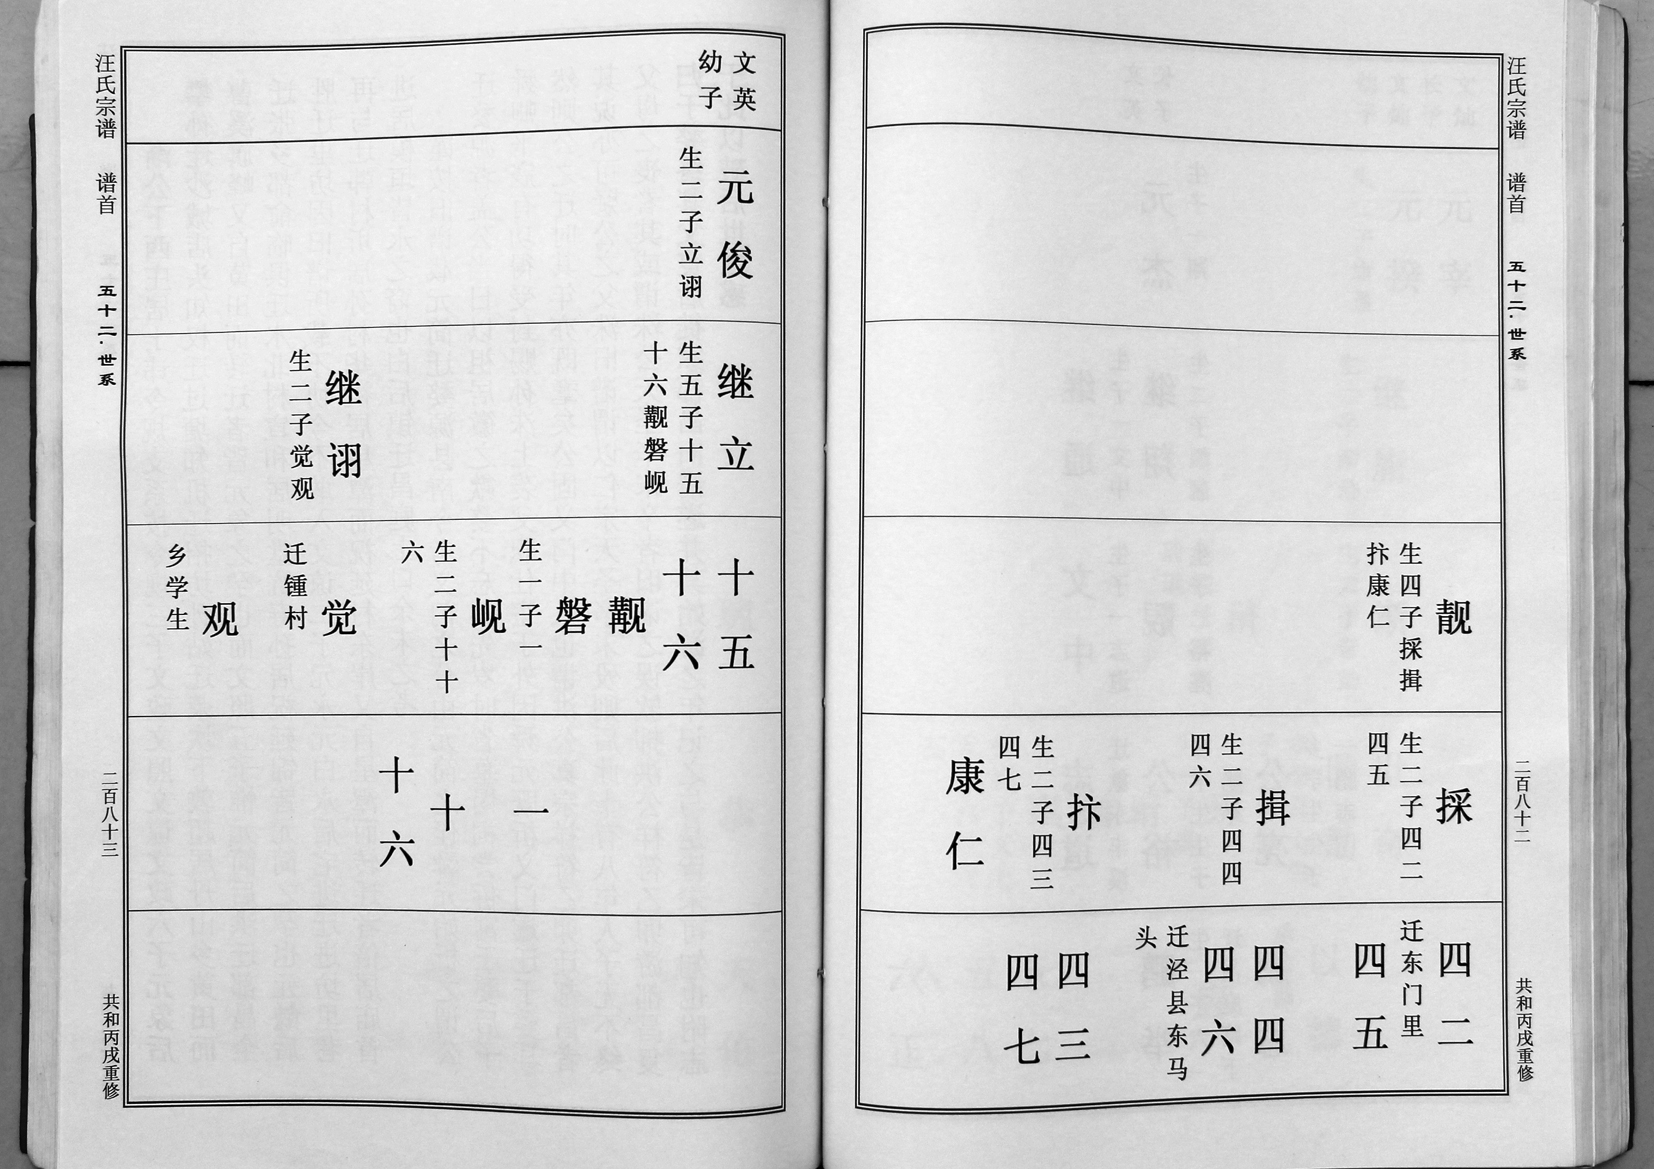 汪氏宗谱
谱首
五十二·世系
二百八十二
共和丙戌重修
靓
生四子採揖
抃康仁
採
生二子四二
四五
揖
生二子四四
四六
抃
生二子四三
四七
康仁
四二
迁东门里
四五
四四
四六
迁泾县东马
头
四三
四七
文英
幼子
元俊
生二子立诩
继立
生五子十五
十六觏磐岘
继诩
生二子觉观
十五
十六
觏
磐
生一子一
岘
生二子十十
六
觉
迁锺村
观
乡学生
一
十
十六
汪氏宗谱
谱首
五十二·世系
二百八十三
共和丙戌重修